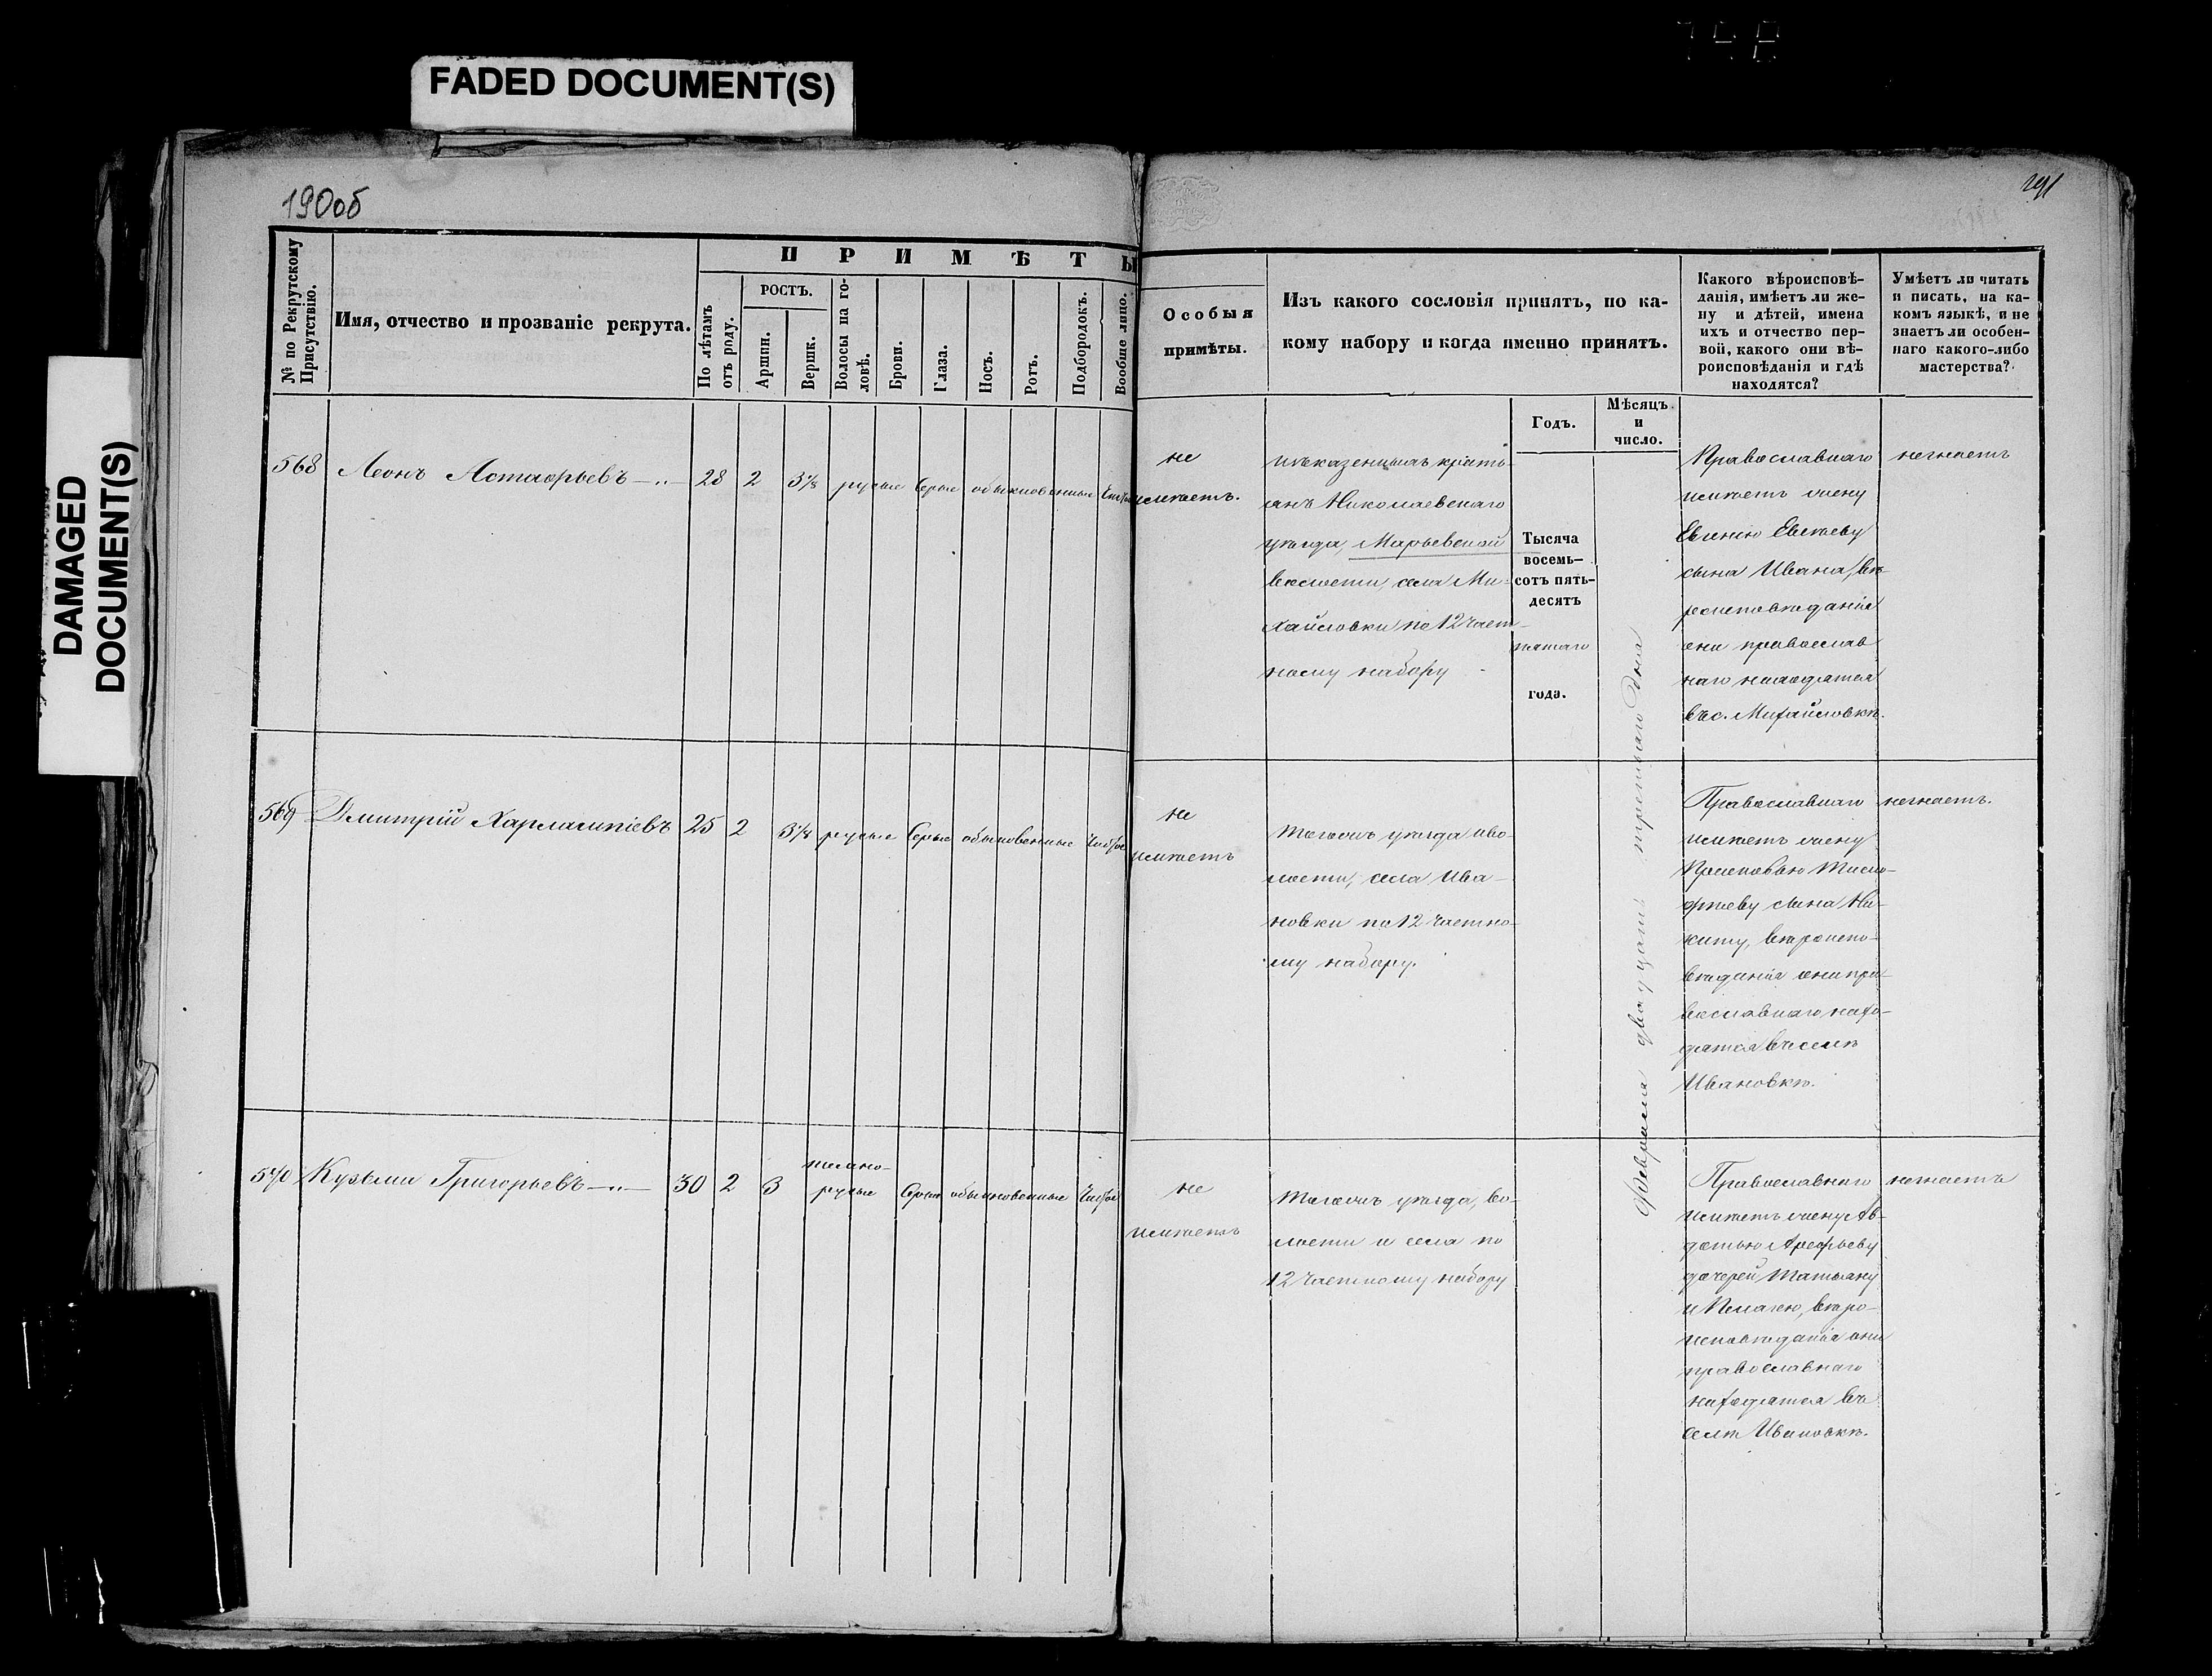 FADED DOCUMENT(S)
DAMAGED
DOCUMENT(S)
190об
191
№ по Рекрутскому
Присутствію.
Имя, отчество и прозваніе рекрута.
ПРИМѢТЫ
По лѣтамъ
отъ роду.
РОСТЪ.
Аршин.
Вершк.
Волосы на го-
ловѣ.
Брови.
Глаза.
Носъ.
Ротъ.
Подбородокъ.
Вообще лицо.
Особыя
примѣты.
Изъ какого сословія принятъ, по ка-
кому набору и когда именно принятъ.
Годъ.
Мѣсяцъ
и
число.
Какого вѣроисповѣ-
данія, имѣетъ ли же-
ну и дѣтей, имена
ихъ и отчество пер-
вой, какого они вѣ-
роисповѣданія и гдѣ
находятся?
Умѣетъ ли читать
и писать, на ка-
комъ языкѣ, и не
знаетъ ли особен-
наго какого-либо
мастерства?
568 Леонъ Астафьевъ 28 2 3⅞ русые Серые обыкновенные
не
имѣетъ.
изъ казенныхъ кресть-
янъ Николаевскаго
уѣзда, Марьевской
волости, села Ми-
хайловки по 12 Част-
ному набору
Тысяча
восемь-
сотъ пять-
десятъ
пятаго
года.
Февраля двадцать третьяго дня
Православнаго
имѣетъ жену
сына Ивана, вѣ-
роисповѣданія
они православ
наго находятся
въ с. Михайловкѣ.
незнаетъ
569 Дмитрій Харлампіевъ 25 2 3⅛ русые Серые обыкновенные Чистое
не
имѣетъ
Тогожъ уѣзда и во-
лости, села Ива-
новки по 12 Частно-
му набору.
Православнаго
имѣетъ жену
Прасковью Тимо-
фѣеву сына Ни-
киту, вѣроиспо-
вѣданія они пра-
вославнаго нахо-
дятся въ селѣ
Ивановкѣ.
незнаетъ.
570 Кузьма Григорьевъ 30 2 3 темно-
русые Серые обыкновенные Чистое
не
имѣетъ
Тогожъ уѣзда, во-
лости и села по
12 Частному набору
Православнаго
имѣетъ жену Ав-
дотью Арефьеву
дочерей Татьяну
и Пелагею, вѣро-
исповѣданія они
православнаго
находятся въ
селѣ Ивановкѣ.
незнаетъ